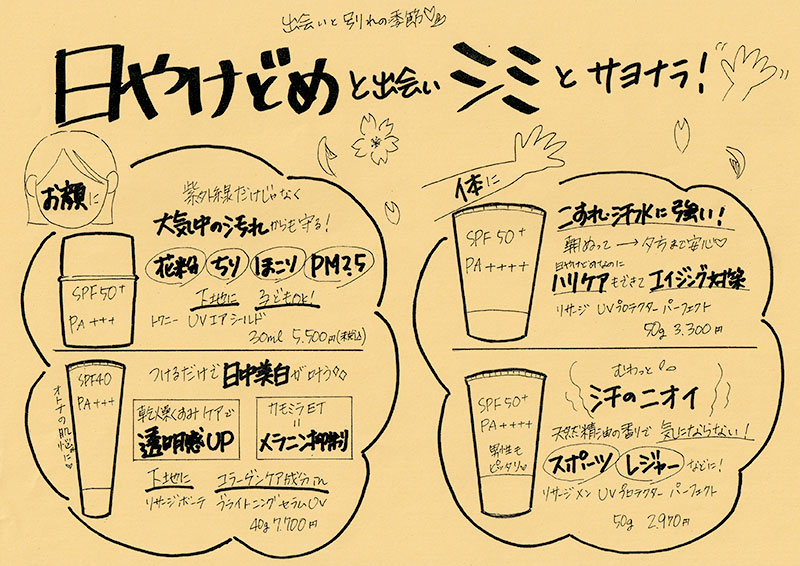 出会いと別れの季節♡
日やけどめと出会いシミとサヨナラ!
お顔に
紫外線だけじゃなく
大気中の汚れからも守る!
花粉 ちり ほこり PM2.5
下地に 子どもOK!
トワニー UVエアシールド
30ml 5,500円(税込)
SPF50+
PA+++
つけるだけで日中美白が叶う
乾燥くすみケアで
透明感UP
カモミラET
=
メラニン抑制
下地に コラーゲンケア成分in
リサージボーテ ブライトニングセラムUV
40g 7,700円
SPF40
PA+++
オトナの肌悩みに♡
体に
こすれ・汗水に強い!
朝ぬって→夕方まで安心♡
日やけどめなのに
ハリケアもできてエイジング対策
リサージ UVプロテクター パーフェクト
50g 3,300円
SPF50+
PA++++
むわっと
汗のニオイ
天然精油の香りで 気にならない!
スポーツ レジャー などに!
リサージメン UVプロテクター パーフェクト
50g 2,970円
SPF50+
PA++++
男性も
ピッタリ♡